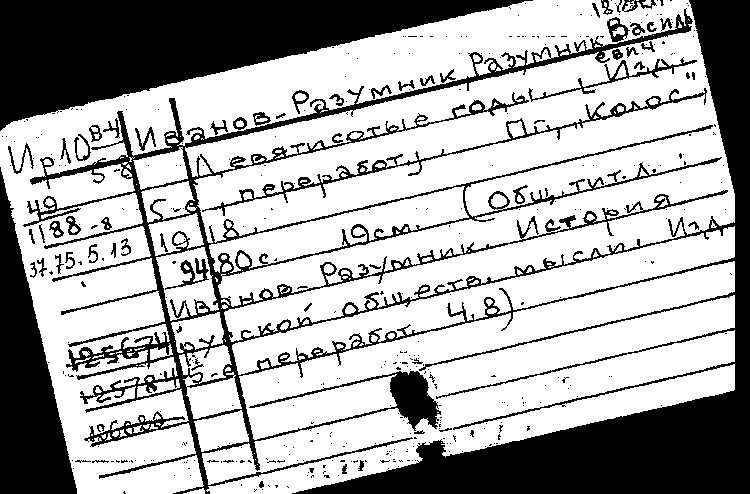 Иванов-Разумник, Разумник Василь
евич.
Ир10 В-4
5-8
Девятисотые годы. [Изд.
49
5-е, переработ.]. Пг., „Колос",
1188-8
1918.
37.75.5.13
94,80с. 19см. (Общ. тит. л.:
Иванов-Разумник. История
русской обществ. мысли. Изд
125674
5-е переработ. Ч. 8).
125784